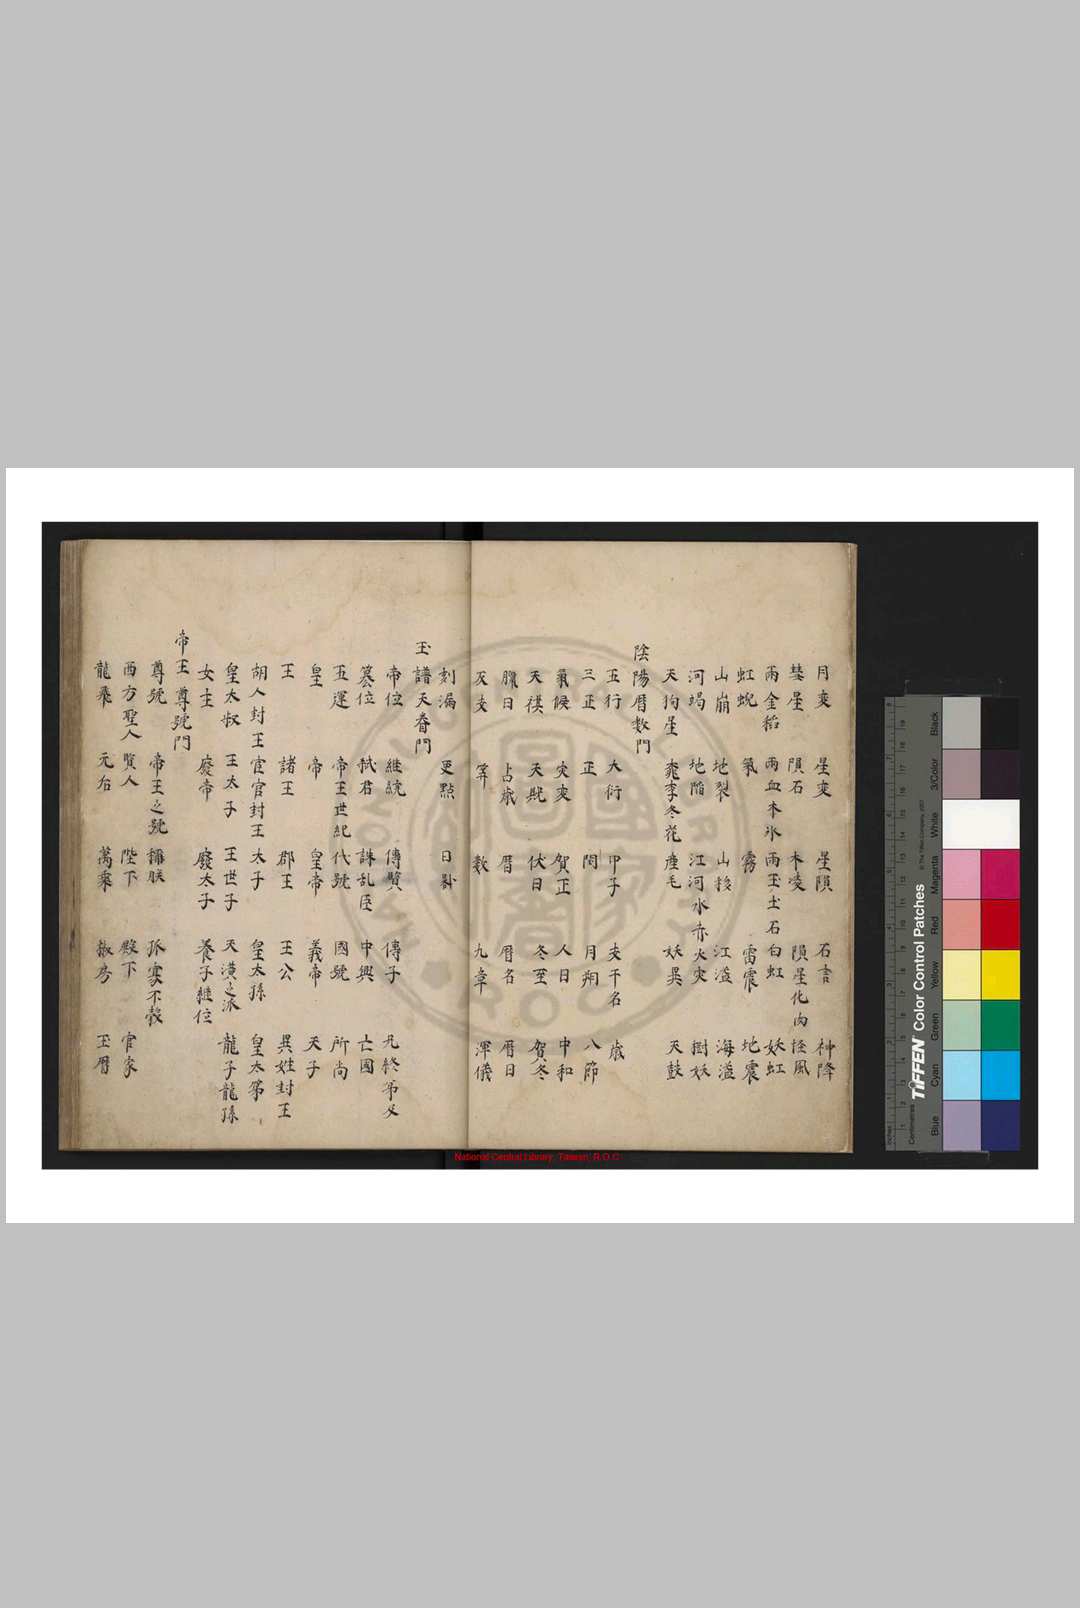 月变 星变 星隕 石言 神降
彗星 隕石 木凌 隕星化肉 怪風
雨金稻 雨血木氷 雨玉土石 白虹 妖虹
虹蜺 氣 霧 雷震 地震
山崩 地裂 山移 江溢 海溢
河竭 地陷 江河水赤 火灾 樹妖
天狗星 桃李冬花 産毛 妖異 天鼓
陰陽曆数門
五行 大衍 甲子 支干名 歳
三正 正 閏 月朔 八節
氣候 灾变 賀正 人日 中和
天祺 天貺 伏日 冬至 賀冬
臘日 占歳 曆 曆名 曆日
灰支 筭 数 九章 渾儀
刻漏 更點 日晷
玉譜天眷門
帝位 継統 傳賢 傳子 兄終弟及
篡位 弒君 誅乱臣 中興 亡國
五運 帝王世紀 代號 國號 所尚
皇 帝 皇帝 義帝 天子
王 諸王 郡王 王公 異姓封王
胡人封王 宦官封王 太子 皇太孫 皇太弟
皇太叔 王太子 王世子 天潢之派 龍子龍孫
女主 廢帝 廢太子 養子継位
帝王尊號門
尊號 帝王之號 稱朕 孤寡不穀
西方聖人 賢人 陛下 殿下 官家
龍飛 元后 萬乗 椒房 玉曆
National Central Library, Taiwan, R.O.C
TIFFEN Color Control Patches
© The Tiffen Company, 2007
Blue Cyan Green Yellow Red Magenta White 3/Color Black
Inches
Centimetres